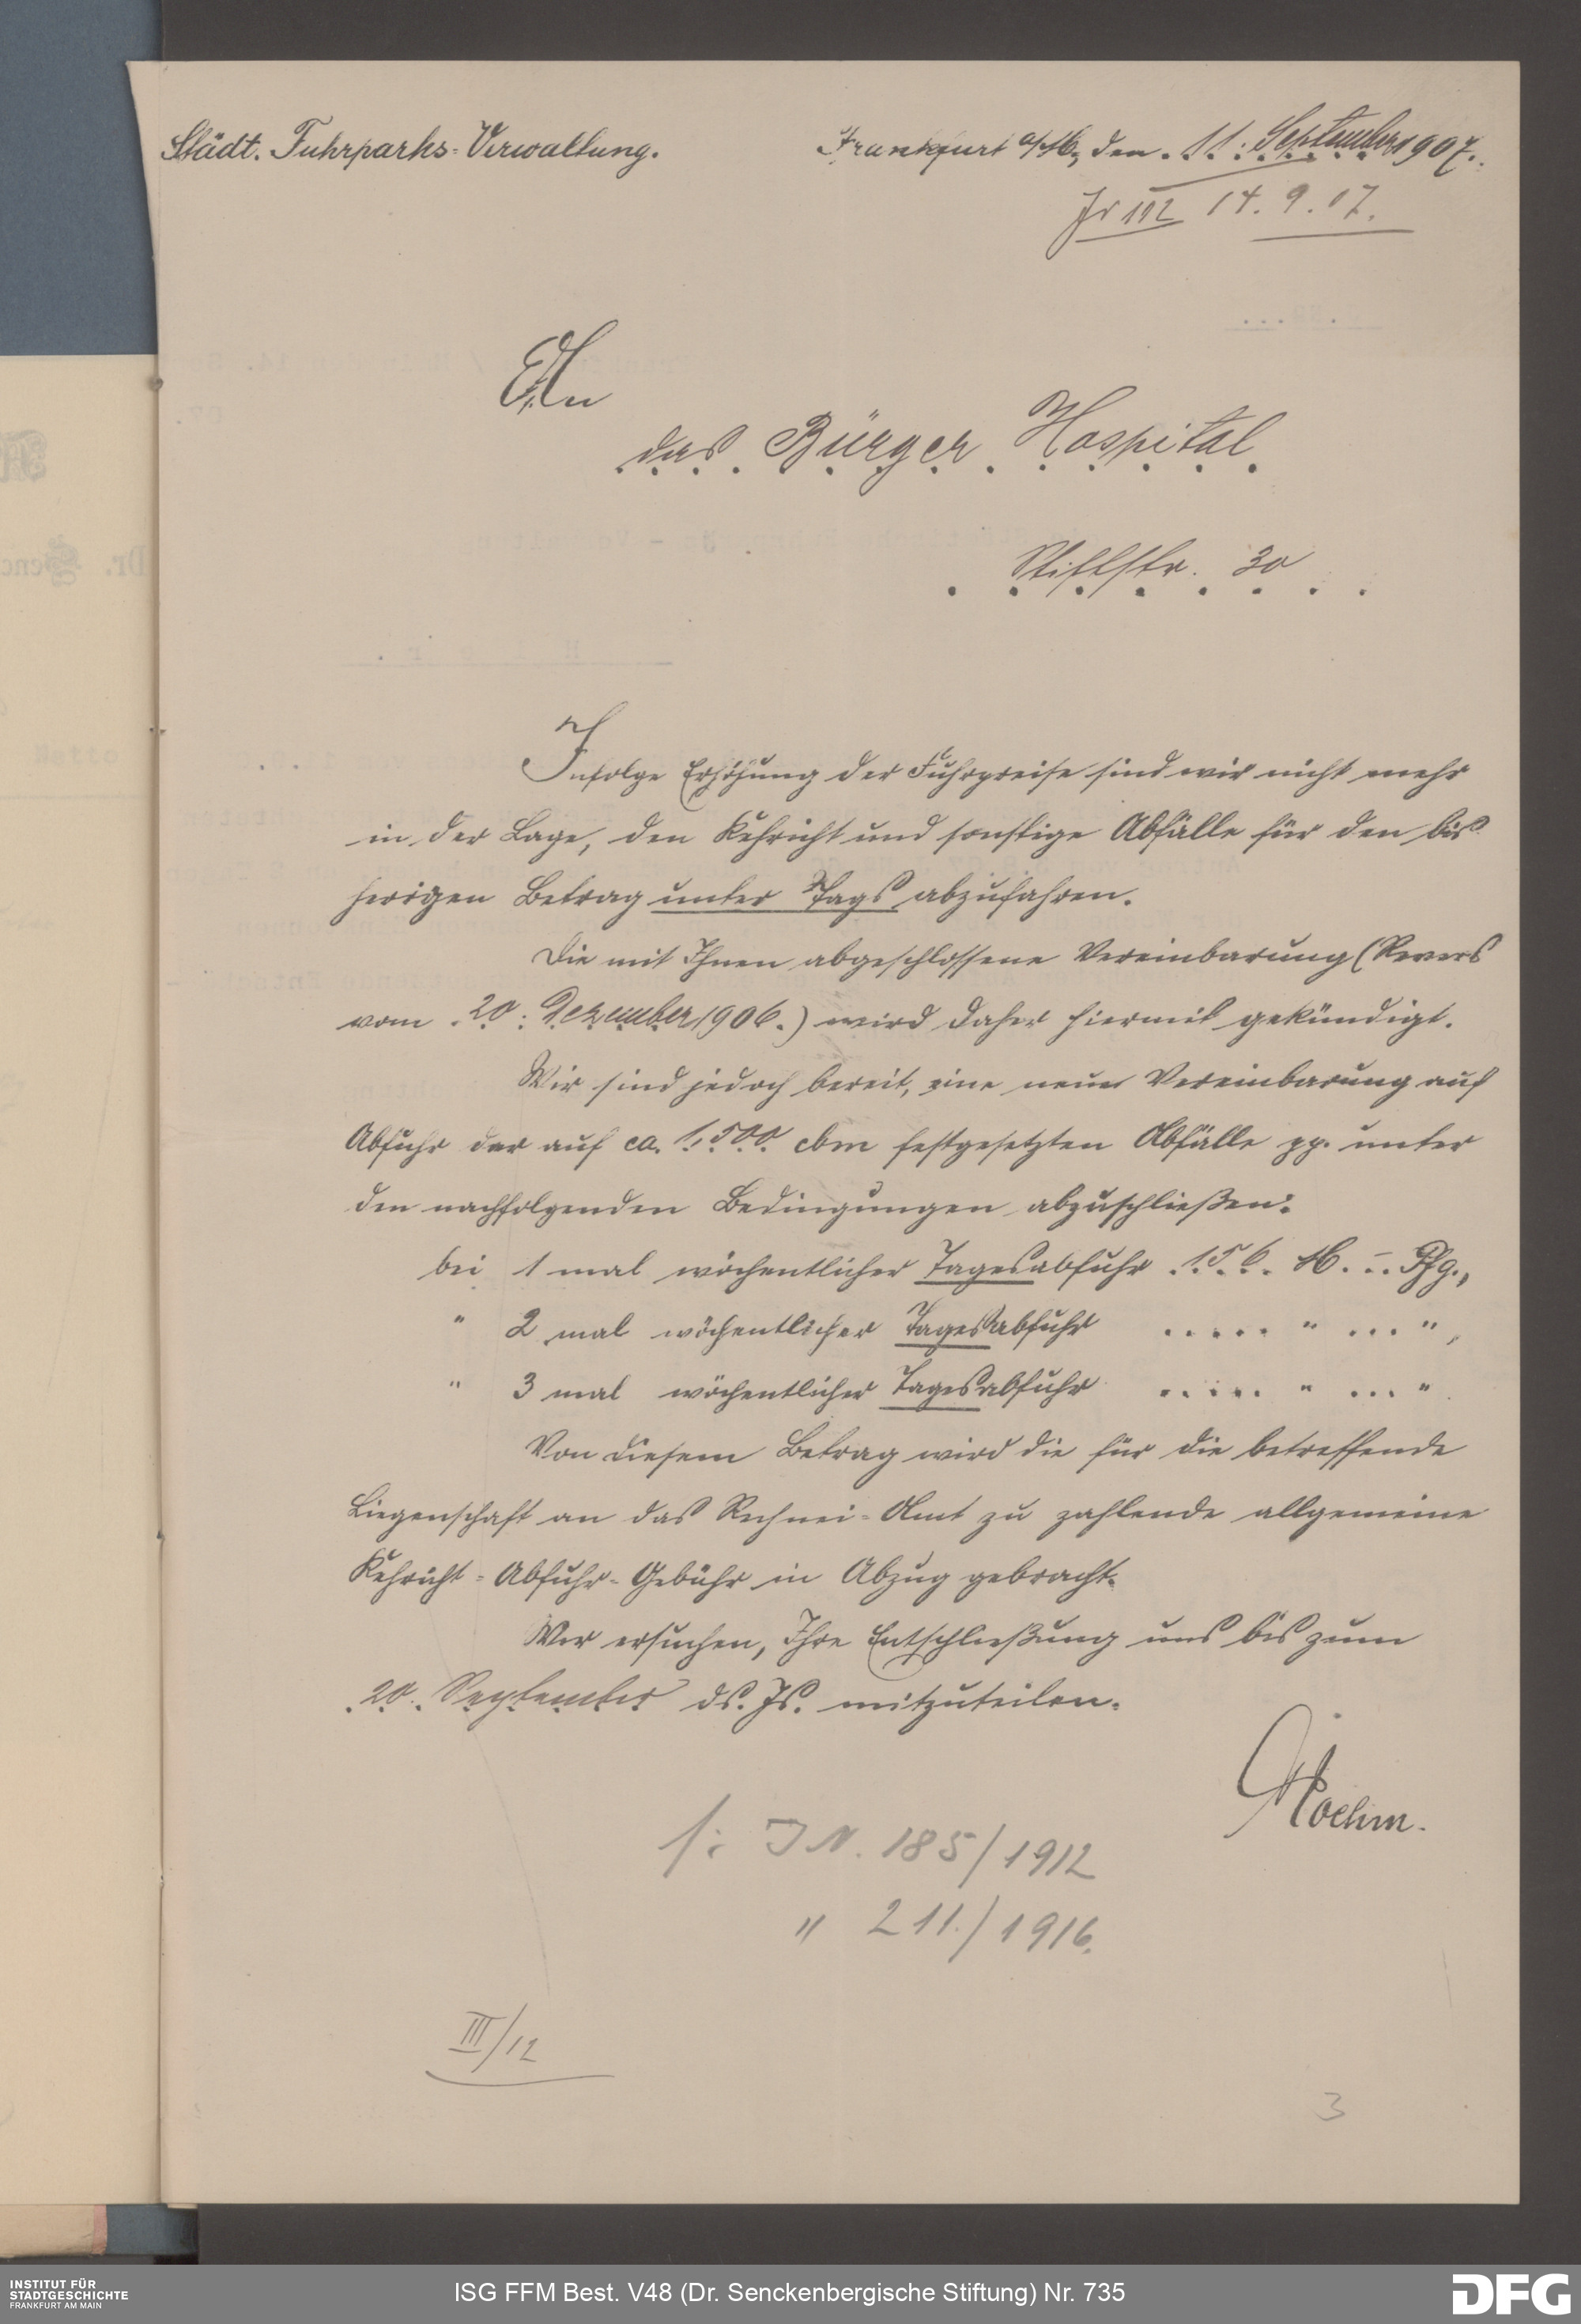 Städt. Fuhrparks-Verwaltung.
Frankfurt a/M., den 11. September 1907.
14. 9. 07.
An
das Bürger Hospital
Stiftstr. 30
Infolge Erhöhung der Fuhrpreise sind wir nicht mehr
in der Lage, den Kehricht und sonstige Abfälle für den bis
herigen Betrag unter Tags abzufahren.
Die mit Ihnen abgeschlossene Vereinbarung (Revers
vom 20. Dezember 1906.) wird daher hiermit gekündigt.
Wir sind jedoch bereit, eine neue Vereinbarung auf
Abfuhr der auf ca. 1.500 cbm festgesetzten Abfälle pp. unter
den nachfolgenden Bedingungen abzuschließen:
bei 1 mal wöchentlicher Tagesabfuhr 156 M. – Pfg.,
" 2 mal wöchentlicher Tagesabfuhr ..... " ... ",
" 3 mal wöchentlicher Tagesabfuhr ..... " ... "
Von diesem Betrag wird die für die betreffende
Liegenschaft an das Rechnei-Amt zu zahlende allgemeine
Kehricht-Abfuhr-Gebühr in Abzug gebracht.
Wir ersuchen, Ihre Entschließung uns bis zum
20. September ds. Js. mitzuteilen.
f: J N. 185/1912
" 211./1916.
III/12
3
INSTITUT FÜR
STADTGESCHICHTE
FRANKFURT AM MAIN
ISG FFM Best. V48 (Dr. Senckenbergische Stiftung) Nr. 735
DFG